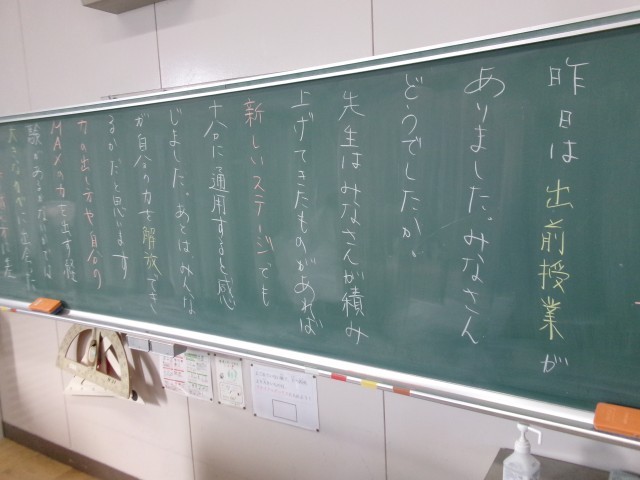 昨日は出前授業が
ありました。みなさん
どうでしたか、
先生はみなさんが積み
上げてきたものがあれば
新しいステージでも
十分に通用すると感
じました。あとはみんな
が自分の力を解放でき
るかだと思います
力の出し方や自分の
MAXの力を出す経
験があるかないかでは